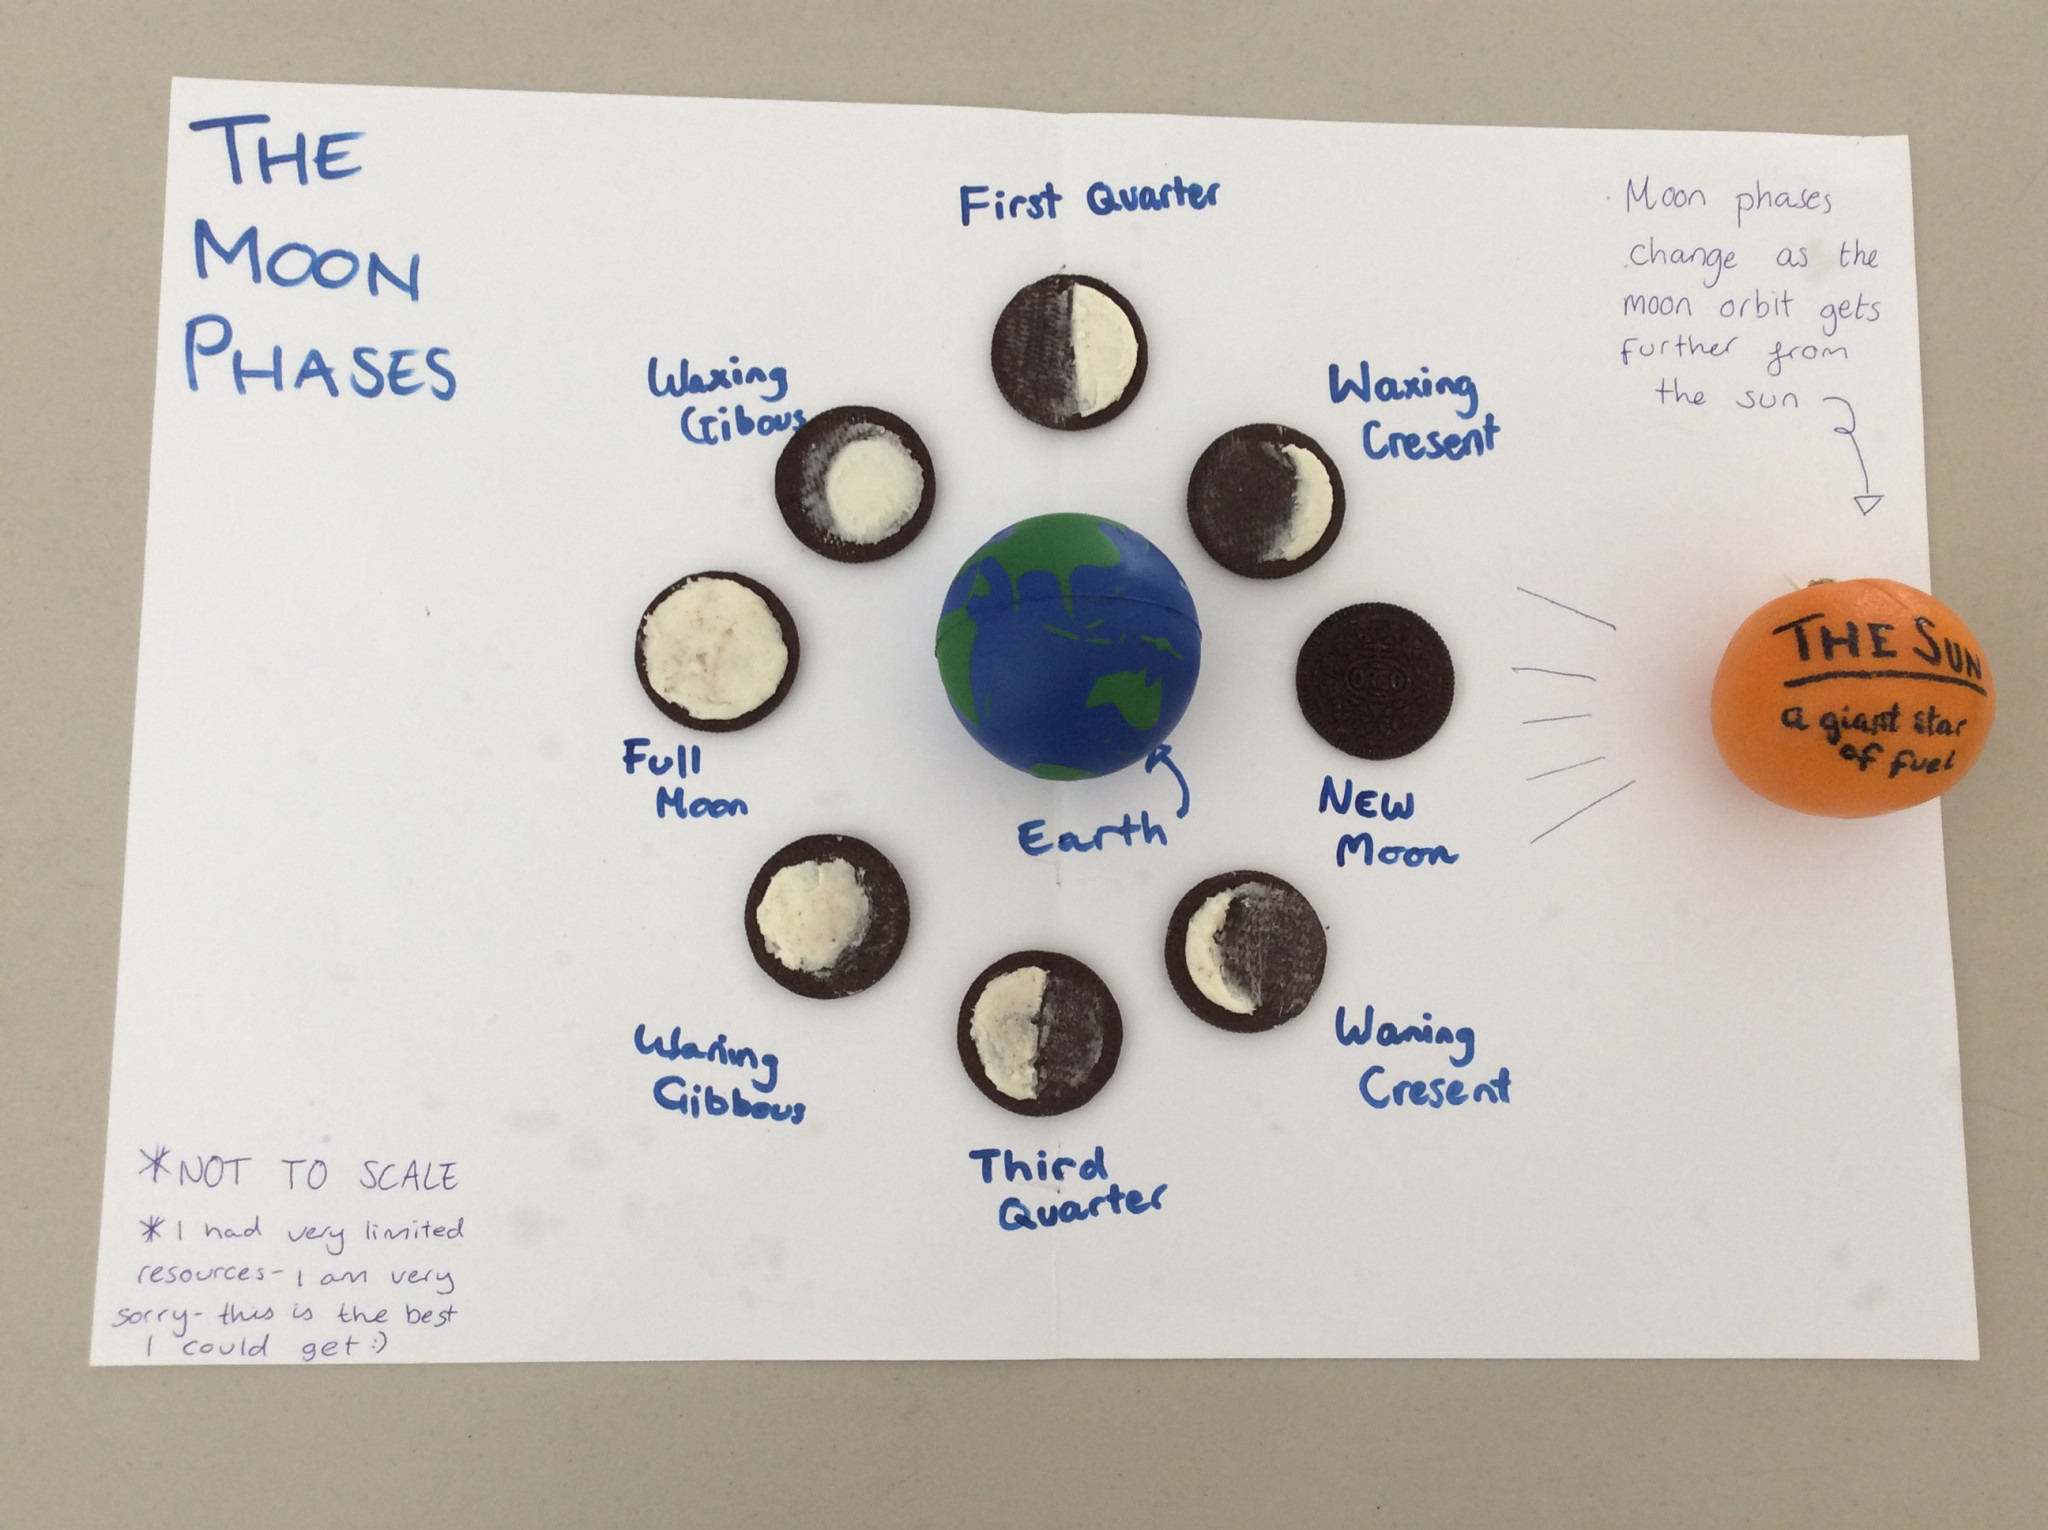 THE
MOON
PHASES
First Quarter
Moon phases
change as the
moon orbit gets
further from
the sun
Waxing
Gibous
Waxing
Cresent
THE SUN
a giant star
of fuel
OREO
Full
Moon
Earth
NEW
Moon
Waning
Gibbous
Waning
Cresent
Third
Quarter
*NOT TO SCALE
*I had very limited
resources- I am very
sorry- this is the best
I could get :)